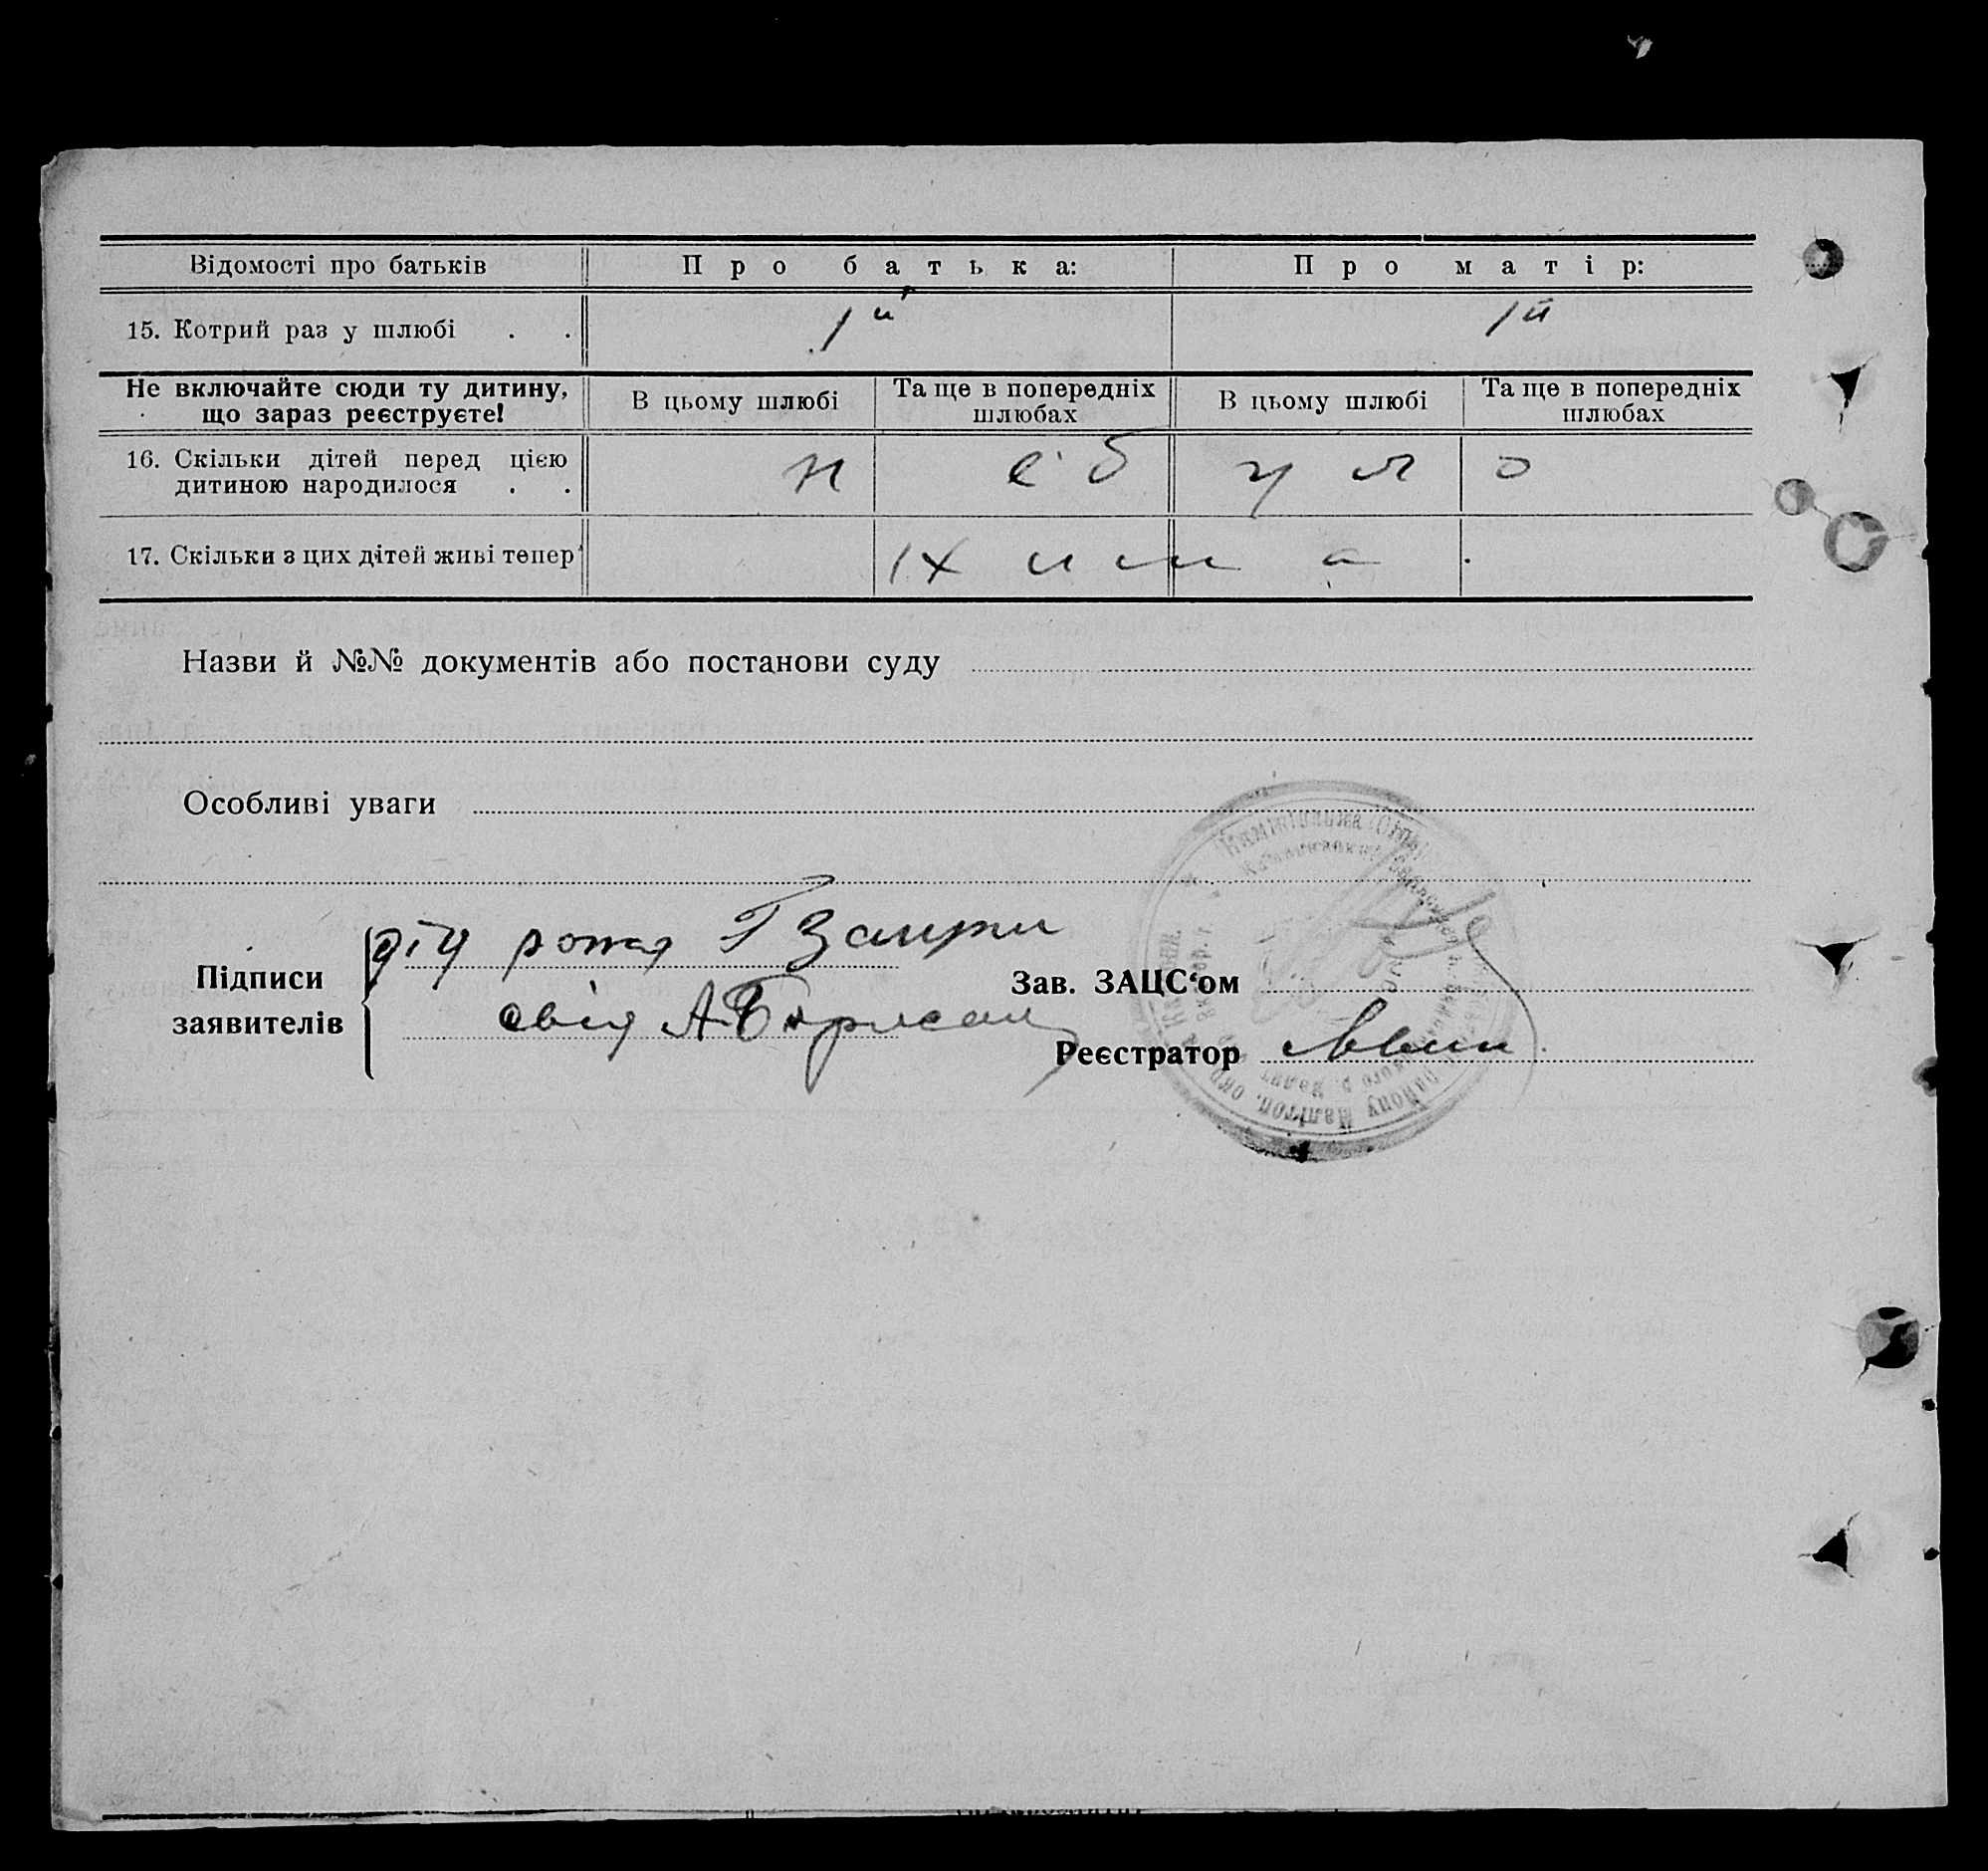 Відомості про батьків Про батька: Про матір:
15. Котрий раз у шлюбі . . 1й 1й
Не включайте сюди ту дитину, що зараз реєструєте! В цьому шлюбі Та ще в попередніх шлюбах В цьому шлюбі Та ще в попередніх шлюбах
16. Скільки дітей перед цією
дитиною народилося . . не було
17. Скільки з цих дітей живі тепер
Назви й №№ документів або постанови суду
Особливі уваги
Підписи
заявителів
Зав. ЗАЦС‘ом
Реєстратор
району Мелітоп. окр.